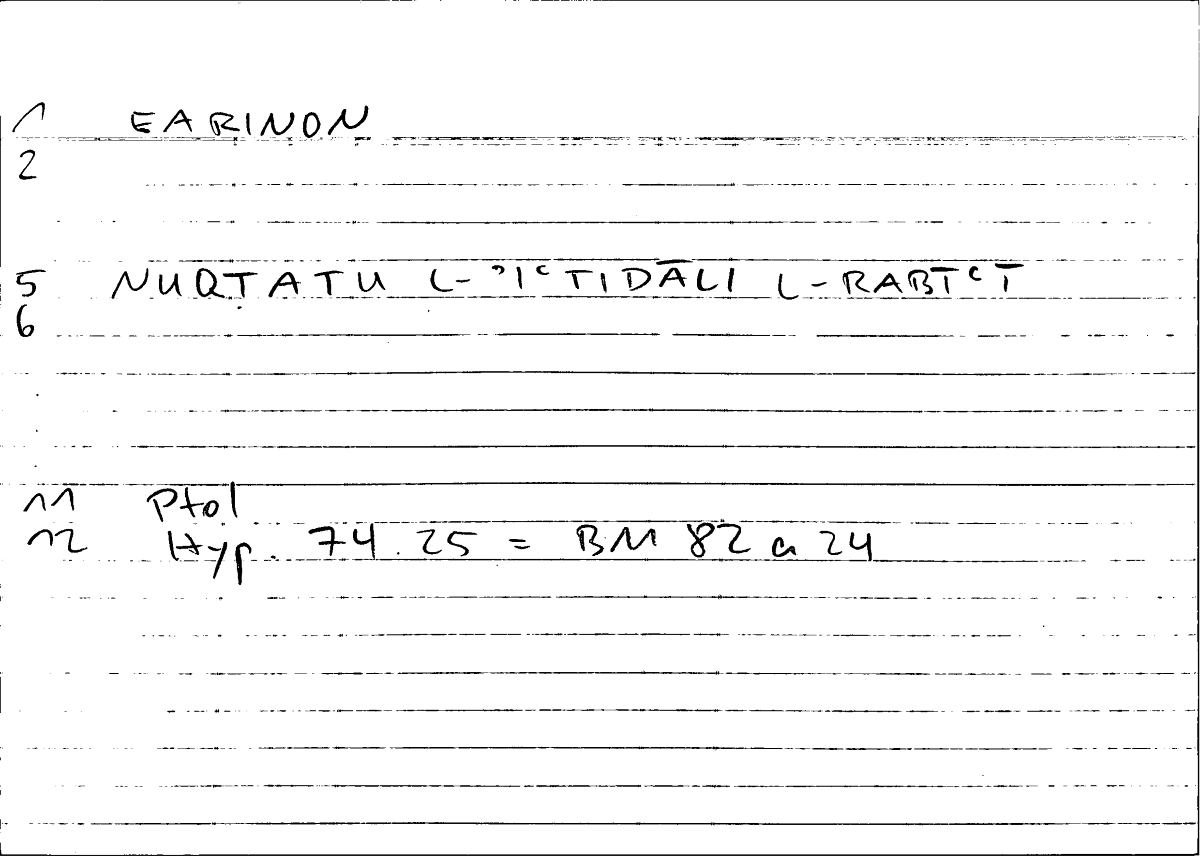 1 EARINON
2
5 NUQṬATU L-ʾIʿTIDĀLI L-RABĪʿĪ
6
11 Ptol
12 Hyp. 74.25 = BM 82 a 24